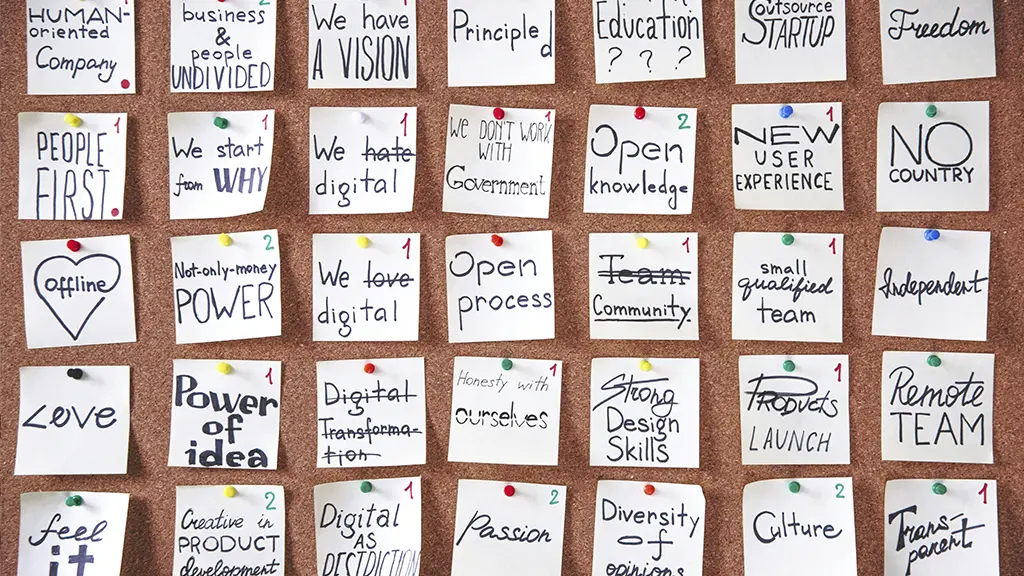 HUMAN-
oriented
Company
2
business
&
people
UNDIVIDED
1
We have
A VISION
Principled
Education
? ? ?
Outsource
STARTUP
Freedom
1
PEOPLE
FIRST.
1
We start
from WHY
1
We hate
digital
1
We DON'T WORK
WITH
Government
2
Open
knowledge
1
NEW
USER
EXPERIENCE
NO
COUNTRY
offline
2
Not-only-money
POWER
1
We love
digital
Open
process
1
Team
Community
1
small
qualified
team
Independent
Love
1
Power
of
idea
1
Digital
Transforma-
tion
1
Honesty with
ourselves
Strong
Design
Skills
1
PRODUCTS
LAUNCH
Remote
TEAM
feel
it
2
Creative in
PRODUCT
development
1
Digital
AS
2
Passion
Diversity
of
opinions
2
Culture
1
Trans-
parent